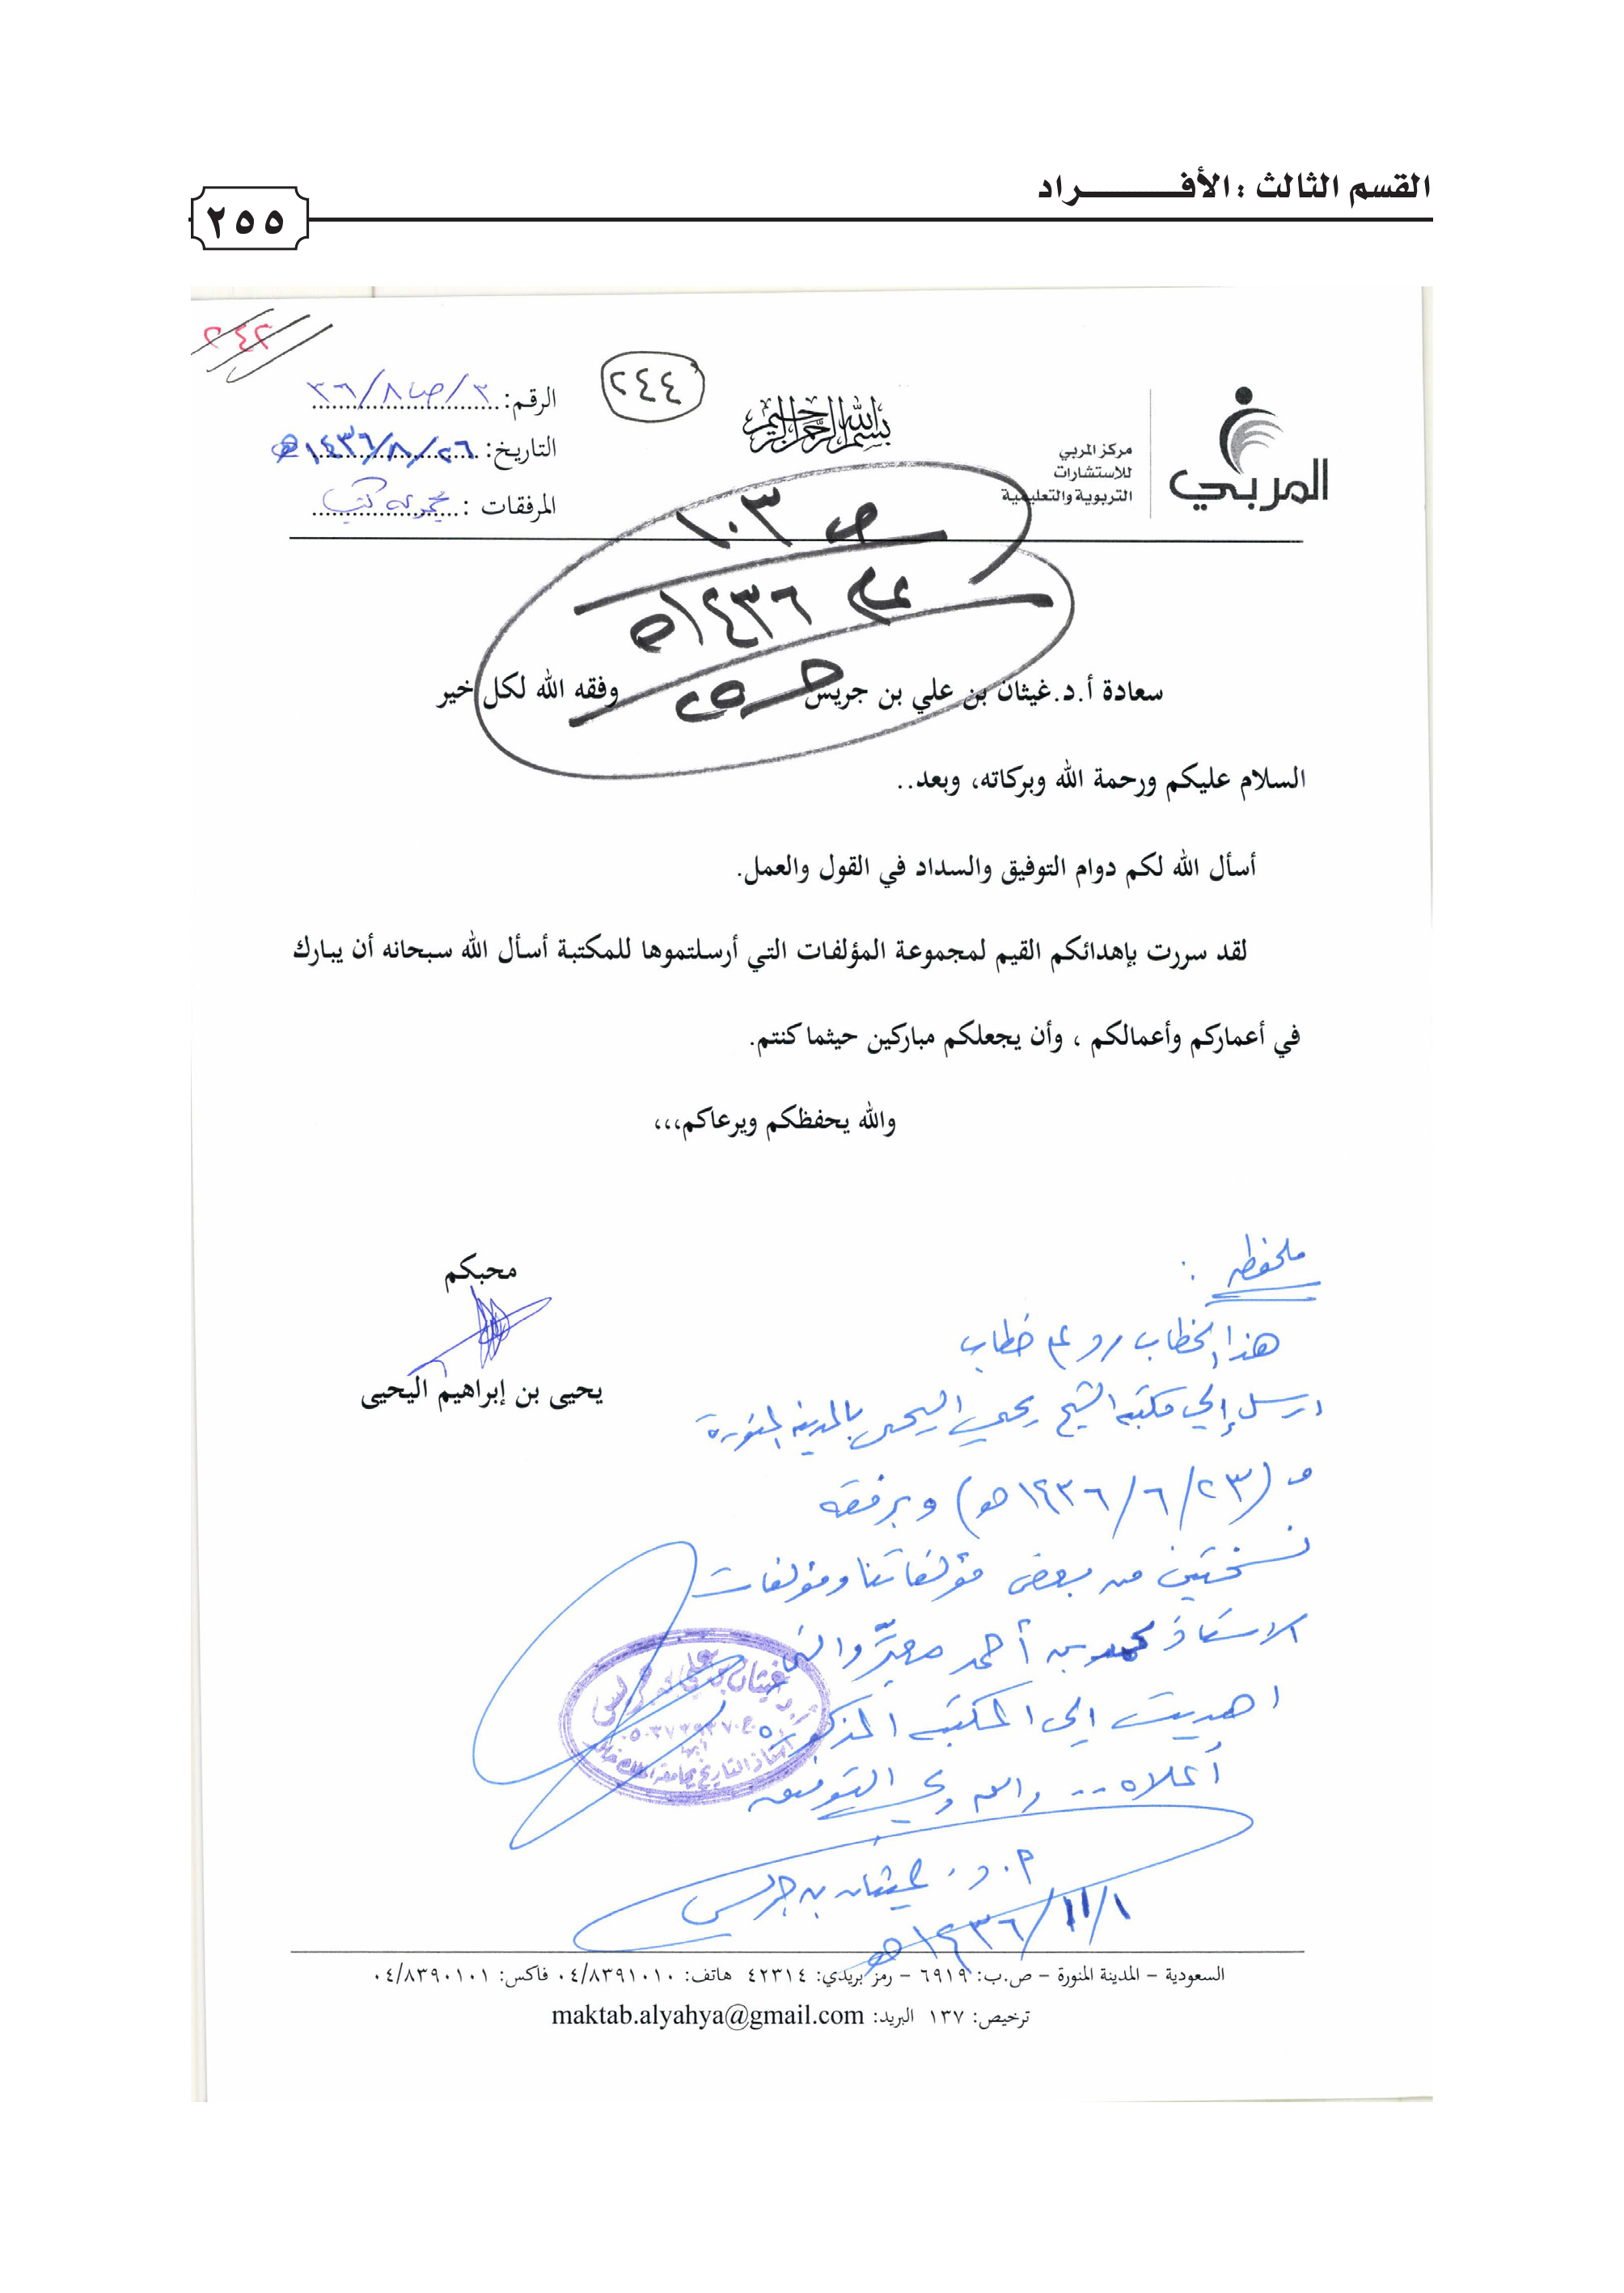 القسم الثالث : الأفـــــــراد
٢٥٥
٢٤٢
٢٤٤
المربي
مركز المربي
للاستشارات
التربوية والتعليمية
بسم الله الرحمن الرحيم
الرقم: ٣/ص/٣٦/٨
التاريخ: ١٤٣٦/٨/٢٦هـ
المرفقات : مجموعة كتب
ص ١٠٣
عام ١٤٣٦هـ
سعادة أ.د.غيثان بن علي بن جريس وفقه الله لكل خير
السلام عليكم ورحمة الله وبركاته، وبعد..
أسأل الله لكم دوام التوفيق والسداد في القول والعمل.
لقد سررت بإهدائكم القيم لمجموعة المؤلفات التي أرسلتموها للمكتبة أسأل الله سبحانه أن يبارك
في أعماركم وأعمالكم ، وأن يجعلكم مباركين حيثما كنتم.
والله يحفظكم ويرعاكم،،،
محبكم
يحيى بن إبراهيم اليحيى
ملحوظه :
هذا الخطاب رد على خطاب
ارسل إلى مكتبه الشيخ يحيى اليحيى بالمدينه المنورة
في (١٤٣٦/٦/٢٣هـ) وبرفقه
نسختين من بعض مؤلفاتنا ومؤلفات
الاستاذ محمد بن أحمد معبّر والتي
اهديت إلى المكتبه المذكوره
أعلاه .. والله ولي التوفيق
أ.د. غيثان بن جريس
١٤٣٦/١١/١هـ
أ.د غيثان بن علي بن جريس
أبها
أستاذ التاريخ بجامعة الملك خالد
السعودية – المدينة المنورة – ص.ب: ٦٩١٩ – رمز بريدي: ٤٢٣١٤ هاتف: ٠٤/٨٣٩١٠١٠ فاكس: ٠٤/٨٣٩٠١٠١
ترخيص: ١٣٧ البريد: maktab.alyahya@gmail.com